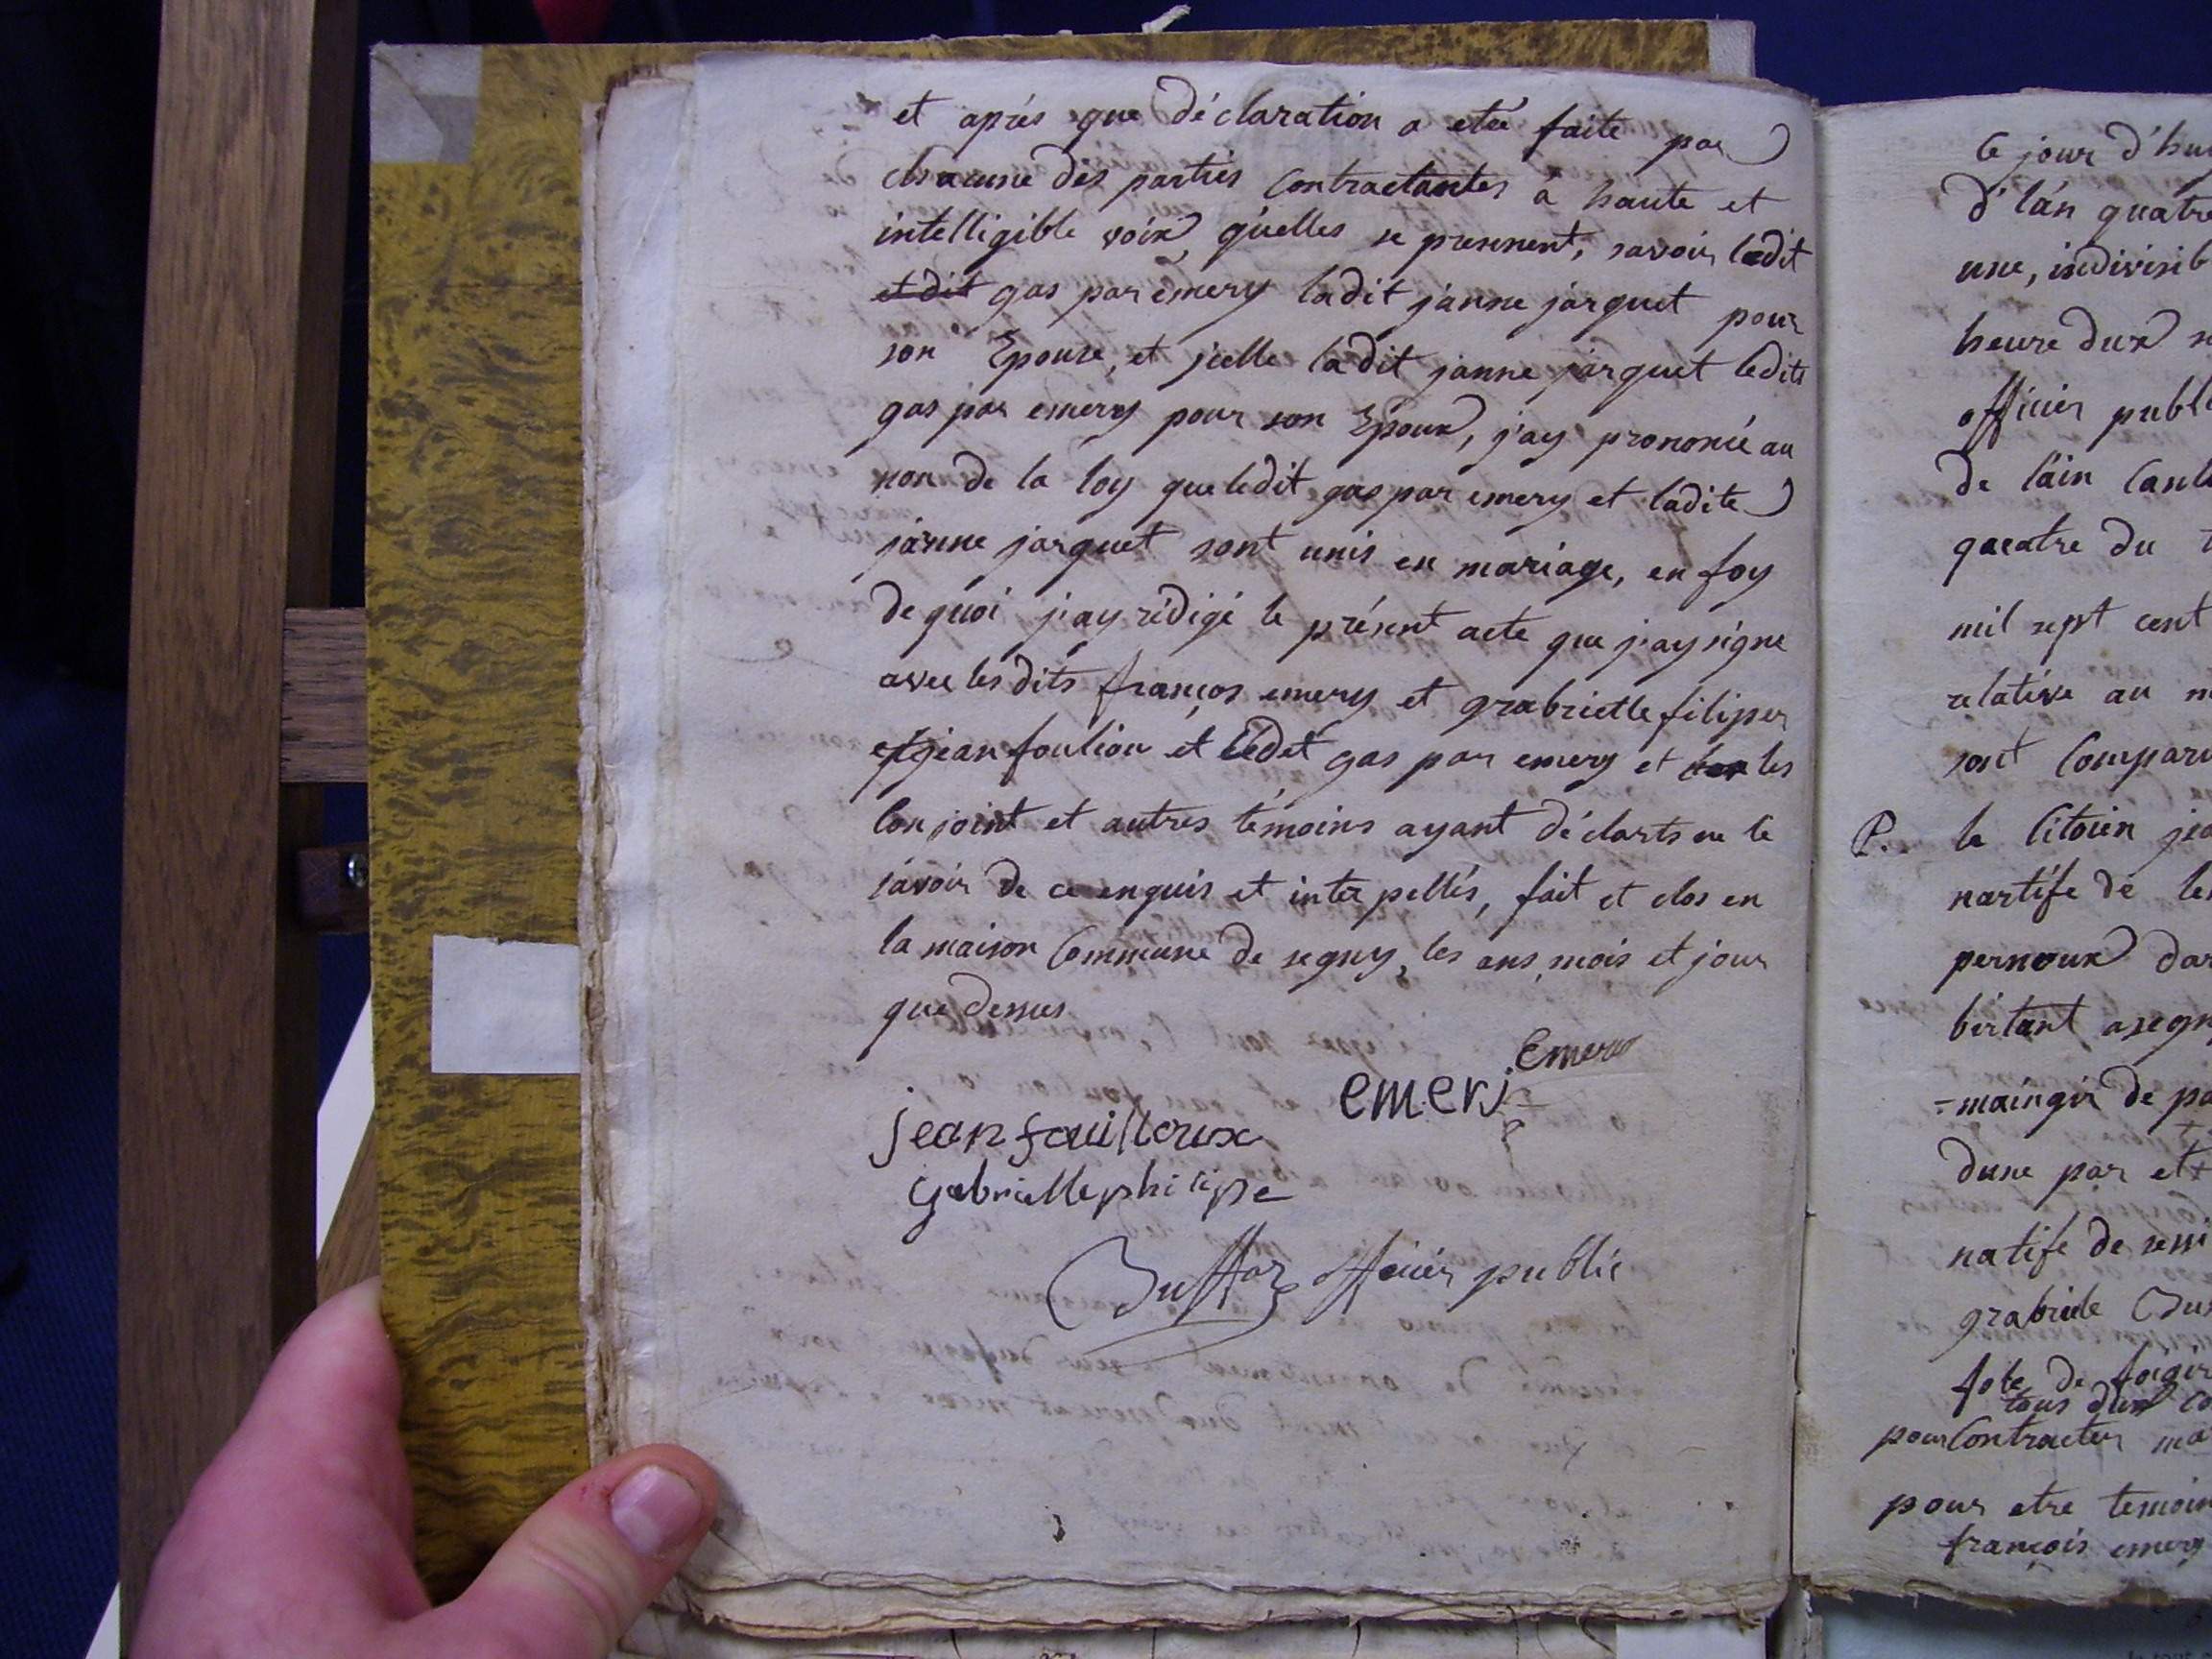 et aprés que déclaration a eteé faite par
chsacune des partiés Contractantes a haute et
intelligible voix quelles se prennent, savoir ledit
et dit gas par emery ladit janne jarquet pour
son Epouse, et jcelle ladit janne jarquet ledits
gas par emery pour son Epoux, j'ay prononcé au
non de la loy que ledit gas par emery et ladite
janne jarquet sont unis en mariage, en foy
de quoi j'ay rédigé le présent acte que j'ay signe
avec les dits franços emery et grabrielle filiper
et jean foulion et ledet gas par emery et les
Conjoint et autres témoins ayant déclarts ne le
savoir de ce enquis et inter pellés, fait et clos en
la maison Commune de segny, les ans, mois et jour
que dessus
Emery
emerj
jean fouilloux
gabriellephilipe
Buffaz officier public
le jour d'hui
d'lán quatre
une, indivisib
heure dux
officier publi
de l'ain Cant
quatre du
mil sept cent
relative au
sont Comparu
P. le Citoien
nartife de
pernoux
bitant a segn
maingir de
dune par et
natife de
grabriele
fole de
tous dux
pour Contracter ma
pour etre temoin
françois emery